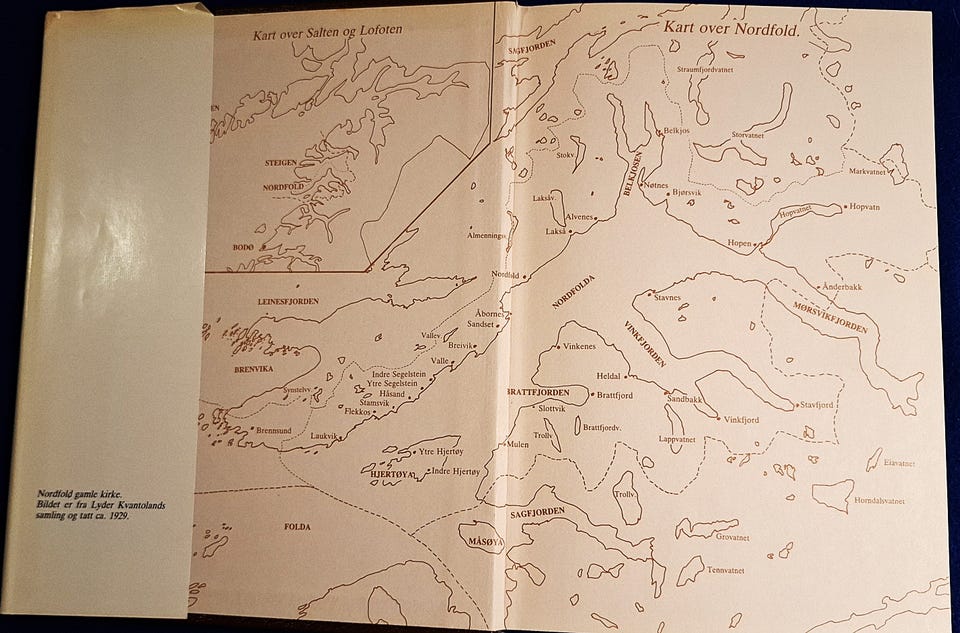 Nordfold gamle kirke.
Bildet er fra Lyder Kvantolands
samling og tatt ca. 1929.
Kart over Salten og Lofoten
EN
STEIGEN
NORDFOLD
BODØ
Kart over Nordfold.
SAGFJORDEN
Straumfjordvatnet
Belkjos
Storvatnet
Stokv
BELKJOSEN
Markvatnet
Nøtnes
Bjørsvik
Laksåv.
Alvenes
Hopvatnet
Hopvatn
Lakså
Almenningsv
Hopen
Nordfold
NORDFOLDA
Ånderbakk
LEINESFJORDEN
Stavnes
MØRSVIKFJORDEN
Åbornes
Sandset
VINKFJORDEN
Vallev
Breivik
Vinkenes
Valle
BRENVIKA
Indre Segelstein
Ytre Segelstein
Heldal
Synstelvv.
Håsand
BRATTFJORDEN
Brattfjord
Sandbakk
Stamsvik
Slottvik
Stavfjord
Flekkos
Vinkfjord
Brennsund
Brattfjordv.
Laukvik
Trollv
Lappvatnet
Mulen
Ytre Hjertøy
Eiavatnet
HJERTØYA
Indre Hjertøy
Trollv.
Horndalsvatnet
SAGFJORDEN
FOLDA
Grovatnet
MÅSØYA
Tennvatnet